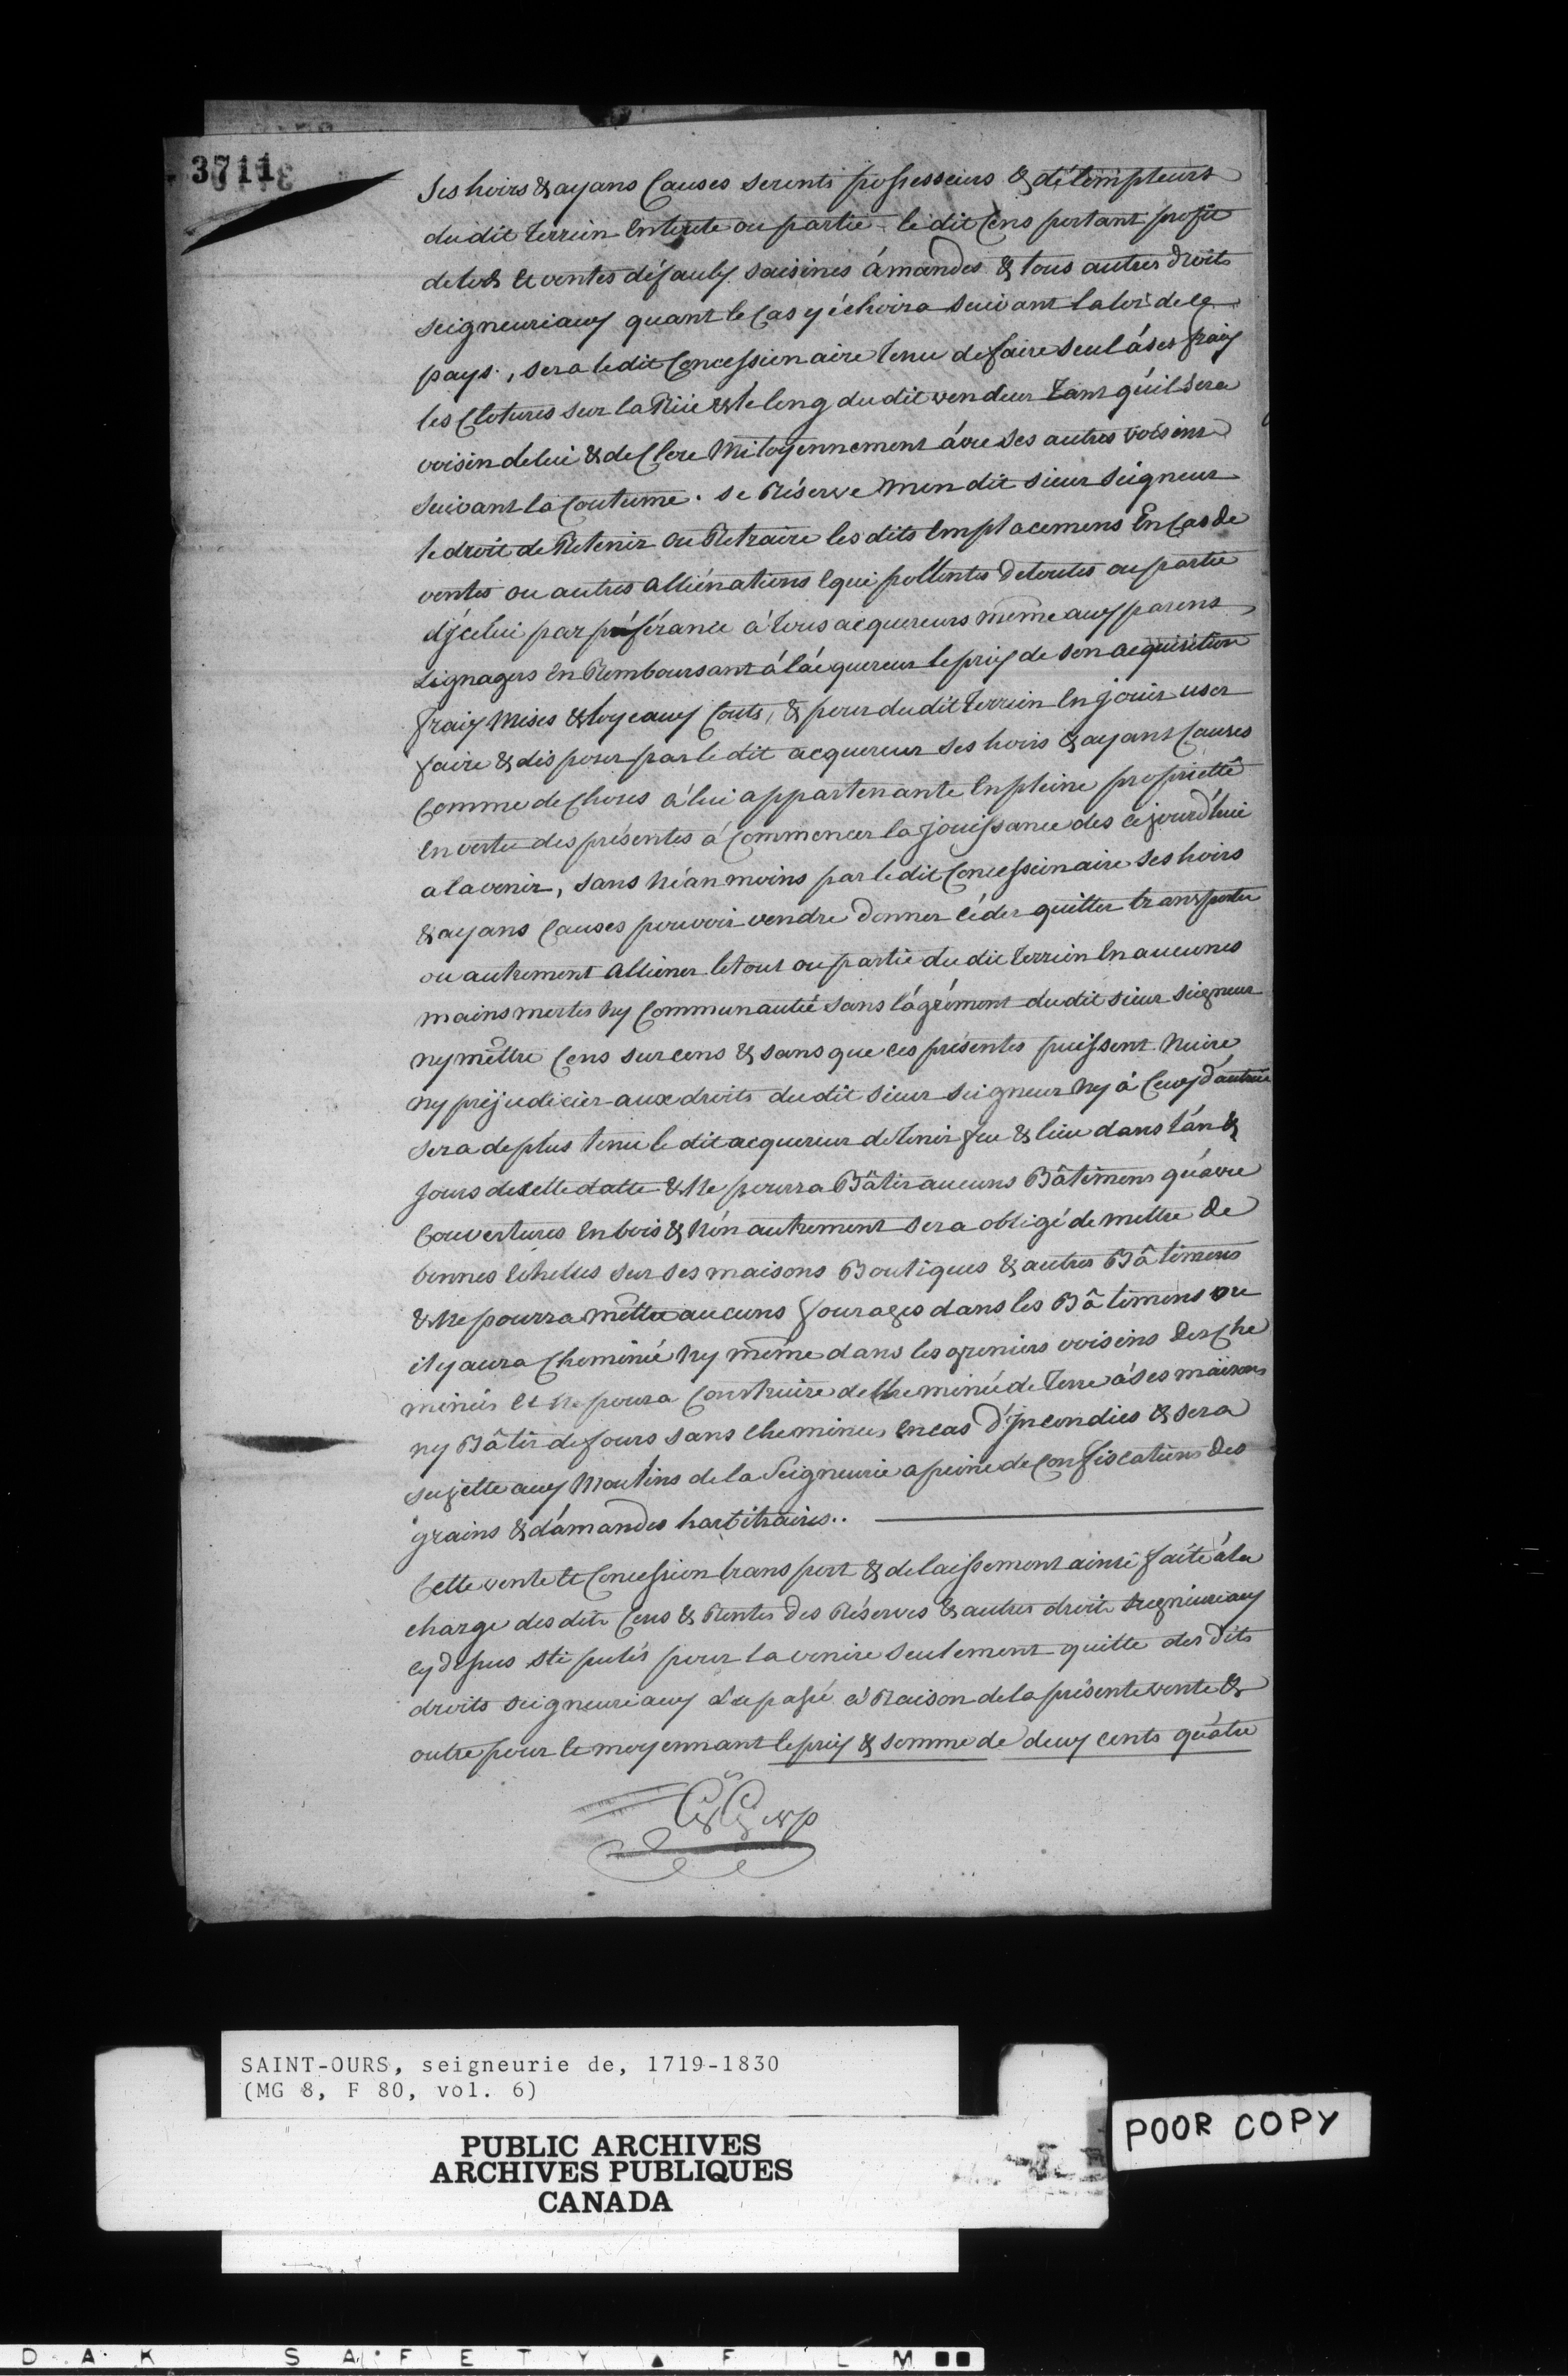 3711
Ses hoirs & ayans Causes seronts possesseurs & détempteurs
du dit terrein Entotete ou partie le dit Cens portant profit
de lods et ventes défauly saisines ámandes & tous autres droits
seigneuriauy quant le Cas y échoira suivant la loi de ce
pays, sera le dit Concessionaire tenu de faire seul á ses fraiy
les Clotures sur la Rüe & le long du dit vendeur Tant qu'il sera
voisin de lui & de Clore Mitoyennement ávec ses autres voisins
suivant la Coutume. se Réserve Mon dit sieur Seigneur
le droit de Retenir ou Retraire les dits Emplacemens En Cas de
ventes ou autres alliénations Equipollentes de toutes ou partie
d'jcelui par préférance à tous acquereurs même auy parens
Lignagers en Remboursant á lácquereur le priy de son acquisition
fraiy Mises & loyeauy Couts, & pour du dit terrein En jouir user
faire & disposer par le dit acquereur ses hoirs & ayant Causes
Comme de Choses á lui appartenante En pleine propriettê
En vertu des présentes á Commencer la jouissance dès cejourd'hui
a lavenir, sans Néanmoins par le dit Concessionaire ses hoirs
& ayans Causes pouvoir vendre donner céder quitter transporter
ou autrement alliéner le tout ou partie du dit terrein En aucunes
mains mortes Ny Communautié sans lágrément du dit sieur seigneur
ny mettre Cens sur cens & sans que ces présentes puissent Nuire
Ny préjudicier aux droits du dit sieur seigneur Ny á Ceuy d'autrui
sera de plus tenu le dit acquereur de tenir feu & lieu dans l'án &
jours de cette datte & Ne pourra Bâtir aucuns Bâtimens qu'avec
Couvertures En bois & Nón autrement sera obligé de mettre de
bonnes Echelles sur ses maisons Boutiques & autres Bâtimens
& Ne pourra mettre aucuns fourages dans les Bâtimens ou
il y aura Cheminée Ny même dans les greniers voisins des Che
minées et Ne poura Construire de Cheminée de Terre á ses maisons
ny Bâtir de fours sans Cheminées En cas d'jncendies & sera
sujette auy Moulins de la Seigneurie a peine de Confiscations des
grains & d'ámandes harbitraires..
Cette vente et Concession transport & delaissement ainsi faite á la
charge des dits Cens & Rentes des Réserves & autres droits seigneuriauy
cy dessus stipulés pour lavenire seulement quitte des dits
droits seigneuriauy du passé á Raison de la présente vente &
outre pour le moyennant le priy & somme de deuy cents quátre
SAINT-OURS, seigneurie de, 1719-1830
(MG 8, F 80, vol. 6)
PUBLIC ARCHIVES
ARCHIVES PUBLIQUES
CANADA
POOR COPY
DAK SAFETY ▲ FILM